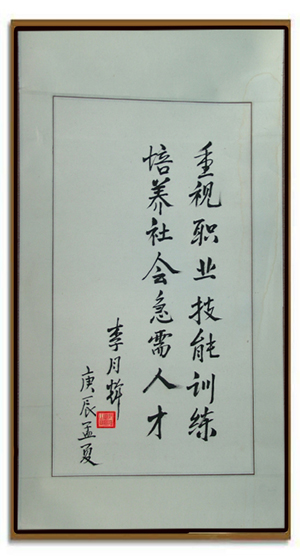 重视职业技能训练
培养社会急需人才
李月辉
庚辰孟夏